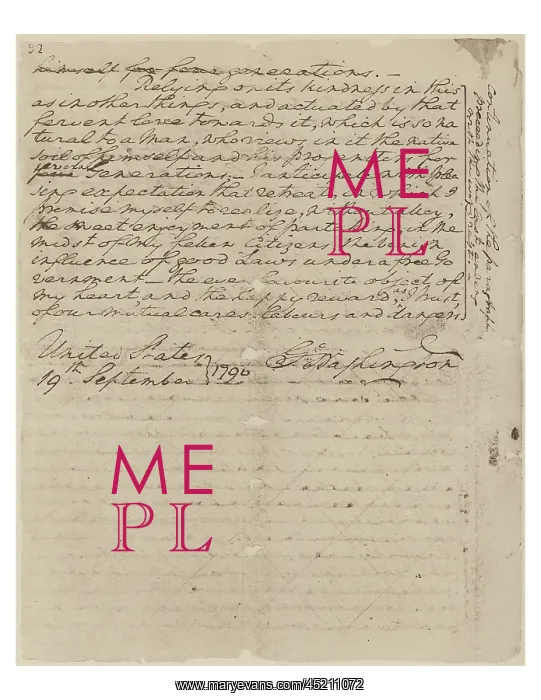 32
himself for four generations. —
Relying on its kindness in this
as in other things, and actuated by that
fervent love towards it, which is so na
tural to a Man, who views in it the native
soil of himself and his progenitors for
several Generations; — I anticipate with plea
sing expectation that retreat, in which I
promise myself to realize, without alloy,
the sweet enjoyment of partaking, in the
midst of my fellow Citizens, the benign
influence of good Laws under a free Go
vernment — the ever favourite object of
my heart, and the happy reward, as I trust,
of our mutual cares, labours and dangers
United States
19th. September } 1796
Go Washington
continuation of the paragraph
preceeding the last ending
with the word
ME
PL
ME
PL
www.maryevans.com/45211072